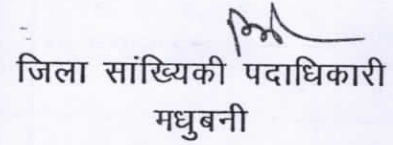 जिला सांख्यिकी पदाधिकारी
मधुबनी